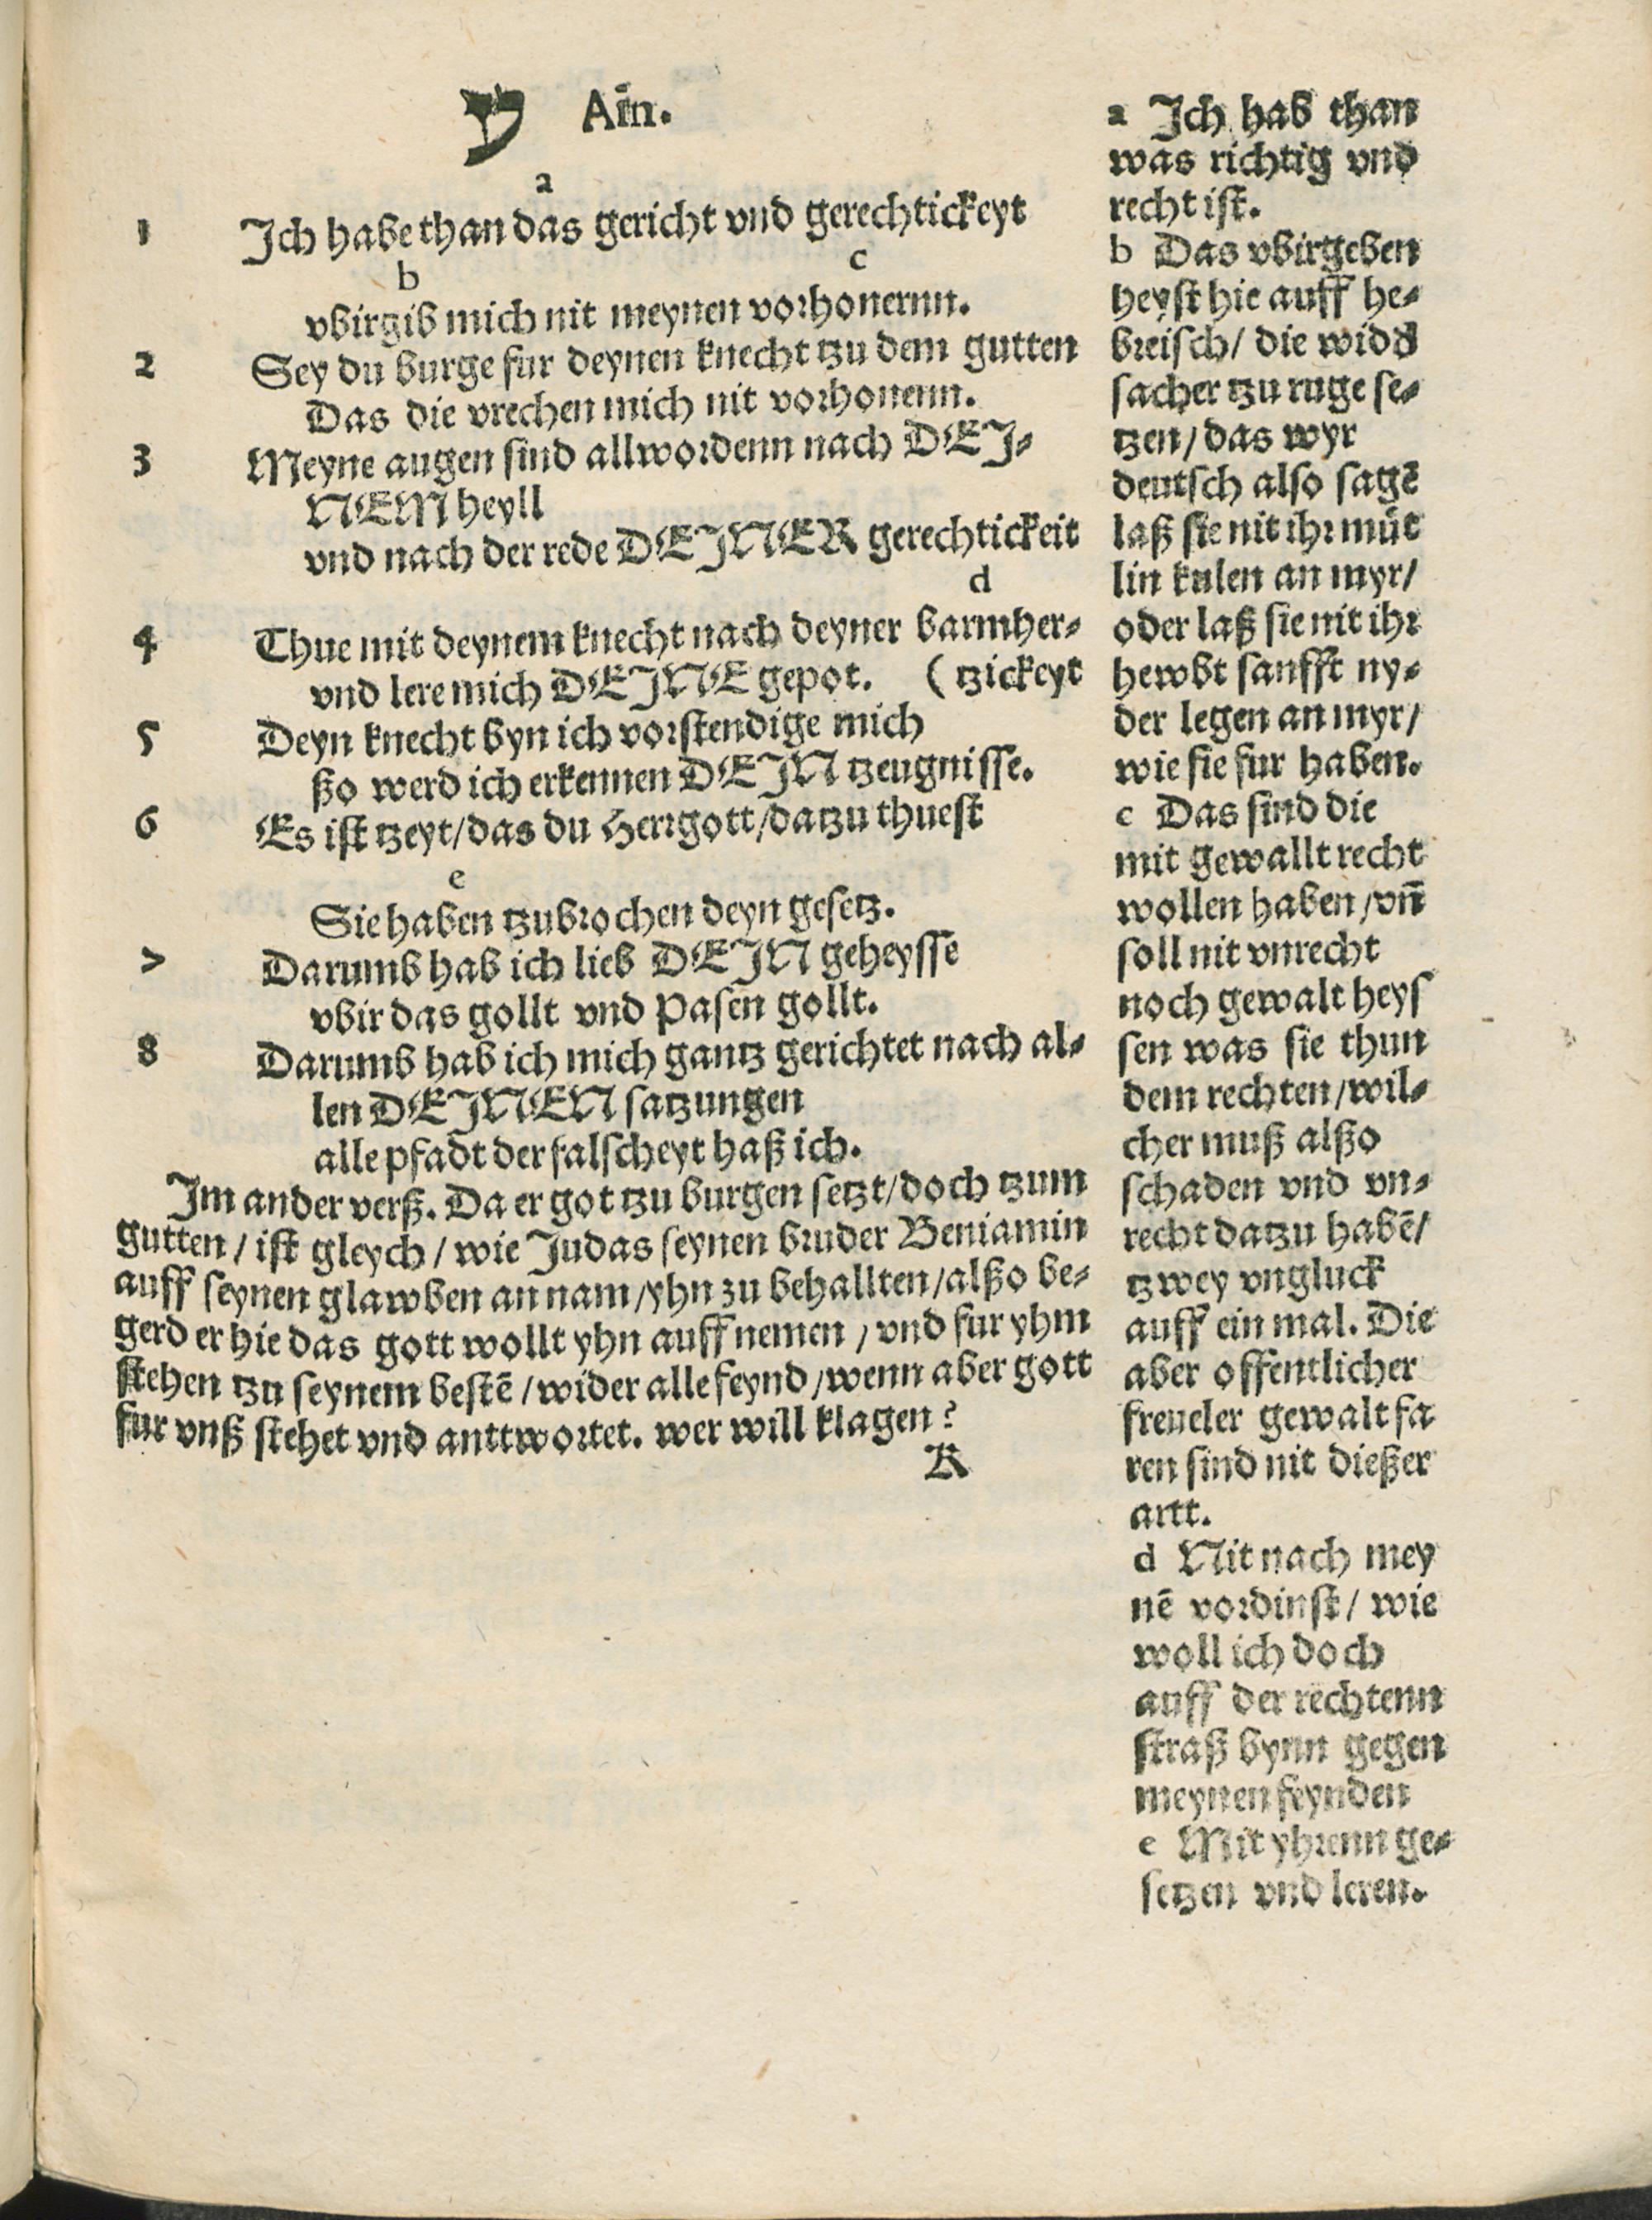 ע Ain.
a
1 Ich habe than das gericht vnd gerechtickeyt
b c
vbirgib mich nit meynen vorhonernn.
2 Sey du burge fur deynen knecht tzu dem gutten
Das die vrechen mich nit vorhonenn.
3 Meyne augen sind all wordenn nach DEJ-
NEM heyll
vnd nach der rede DEJNER gerechtickeit
d
4 Thue mit deynem knecht nach deyner barmher-
vnd lere mich DEJNE gepot. ( tzickeyt
5 Deyn knecht byn ich vorstendige mich
ßo werd ich erkennen DEJN tzeugnisse.
6 Es ist tzeyt/das du Herrgott/datzu thuest
e
Sie haben tzubrochen deyn gesetz.
7 Darumb hab ich lieb DEJN geheysse
vbir das gollt vnd Pasen gollt.
8 Darumb hab ich mich gantz gerichtet nach al-
len DEJNEN satzungen
alle pfadt der falscheyt haß ich.
Im ander verß. Da er got tzu burgen setzt/doch tzum
gutten/ist gleych/wie Judas seynen bruder Beniamin
auff seynen glawben an nam/yhn zu behallten/alßo be-
gerd er hie das gott wollt yhn auff nemen/vnd fur yhm
stehen tzu seynem bestē/wider alle feynd/wenn aber gott
fur vnß stehet vnd anttwortet. wer will klagen?
K
a Ich hab than
was richtig vnd
recht ist.
b Das vbirgeben
heyst hie auff he-
breisch/ die widd
sacher tzu ruge se-
tzen/das wyr
deutsch also sagē
laß sie nit ihr müt
lin kulen an myr/
oder laß sie nit ihr
hewbt sanfft ny-
der legen an myr/
wie sie fur haben.
c Das sind die
mit gewallt recht
wollen haben/vñ
soll nit vnrecht
noch gewalt heys
sen was sie thun
dem rechten/wil-
cher muß alßo
schaden vnd vn-
recht datzu habē/
tzwey vngluck
auff ein mal. Die
aber offentlicher
freueler gewalt fa
ren sind nit dießer
artt.
d Nit nach mey
nē vordinst/ wie
woll ich doch
auff der rechtenn
straß bynn gegen
meynen feynden
e Mit yhrenn ge-
setzen vnd leren.